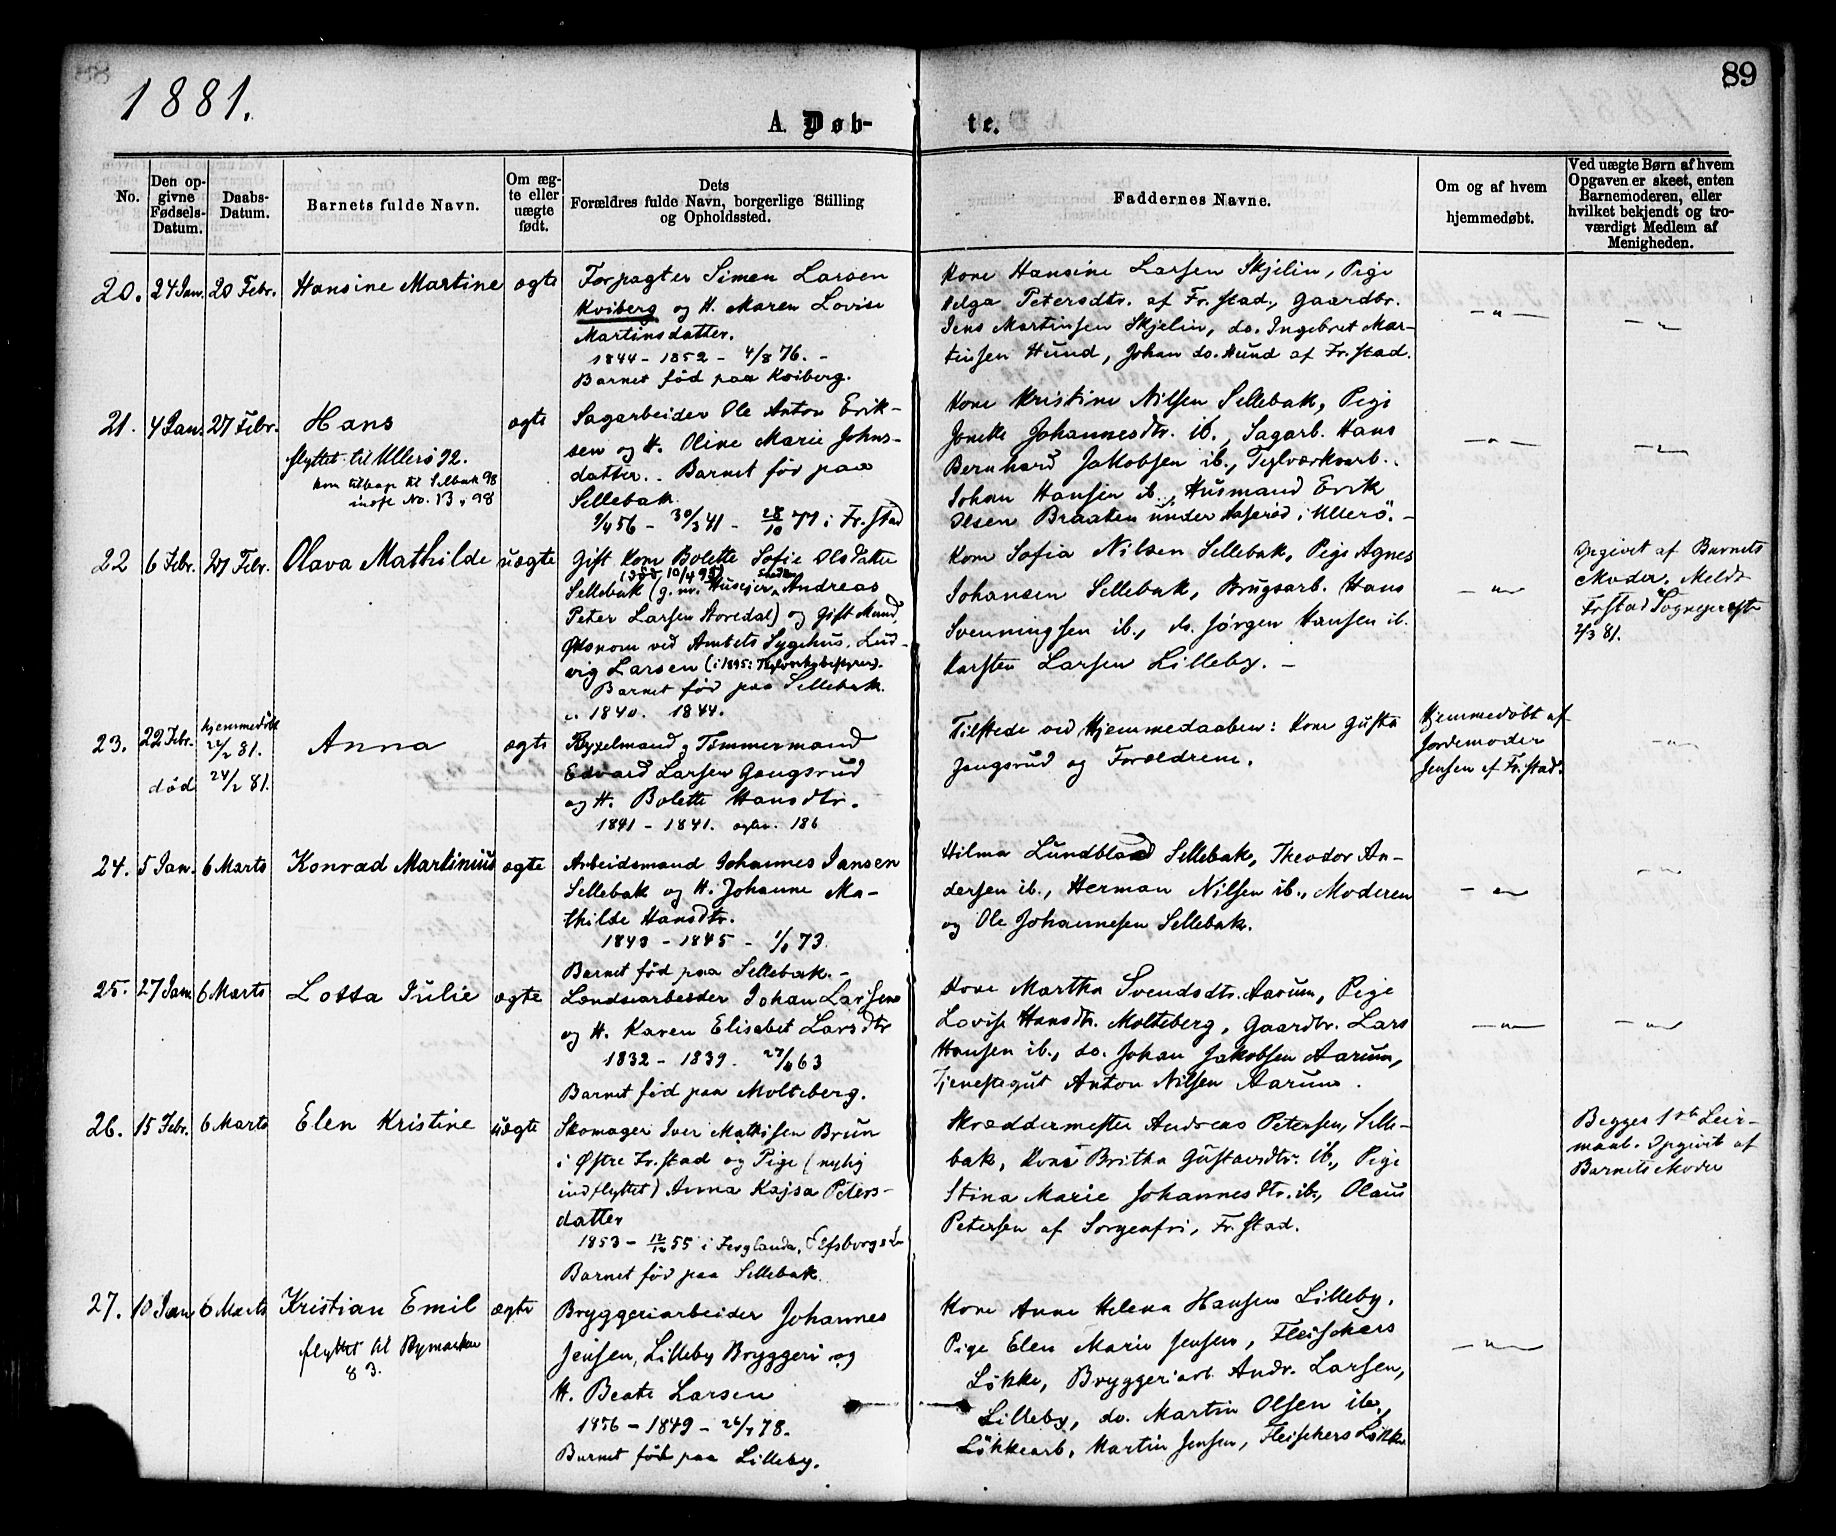 1881.
89
A. Døb-
te.
No.
Den op-
givne
Fødsels-
Datum.
Daabs-
Datum.
Barnets fulde Navn.
Om æg-
te eller
uægte
født.
Dets
Forældres fulde Navn, borgerlige Stilling
og Opholdssted.
Faddernes Navne.
Om og af hvem
hjemmedøbt.
Ved uægte Børn af hvem
Opgaven er skeet, enten
Barnemoderen, eller
hvilket bekjendt og tro-
værdigt Medlem af
Menigheden.
20. 24 Jan. 20 Febr. Hansine Martine ægte
Forpagter Simen Larsen
Kviberg og H. Maren Lovise
Martinsdatter.
1844 - 1852 - 4/8 76. -
Barnet fød paa Kviberg.
Kone Hansine Larsen Skjelin, Pige
Helga Petersdtr. af Fr.stad, Gaardbr.
Jens Martinsen Skjelin, do. Ingebret Mar-
tinsen Hund, Johan do. Hund af Fr.stad.
- " -
- "
21. 4 Jan. 27 Febr. Hans ægte
flyttet til Ullerø 92.
kom tilbage til Selbak 98
indfl. No. 13, 98
Sagarbeider Ole Anton Erik-
sen og H. Oline Marie Johns-
datter. Barnet fød paa
Sellebak.
9/4 56 - 30/3 41 - 28/10 77 i Fr.stad
Kone Kristine Nilsen Sellebak, Pige
Jonette Johannesdtr. ib., Sagarb. Hans
Bernhard Jakobsen ib., Teglværksarb.
Johan Hansen ib., Husmand Erik
Olsen Braaten under Aaserød i Ullerö. -
- " -
- "
22 6 Febr. 27 Febr. Olava Mathilde uægte
Gift Kone Bolette Sofie Olsdatter
(død 10/4 95)
Sellebak (g. m. Husejer Andreas
Peter Larsen Horedal) og Gift Mand,
Økonom ved Amtets Sygehus, Lud-
vig Larsen (i 1895: Teglverksbestyrer).
Barnet fød paa Sellebak.
c. 1840. 1844.
Kone Sofia Nilsen Sellebak, Pige Agnes
Johansen Sellebak, Brugsarb. Hans
Svenningsen ib., do. Jørgen Hansen ib.
Karsten Larsen Lilleby. -
- "
Opgivet af Barnets
Moder. Meldt
Frstad Sogneprest
2/3 81.
23. 22 Febr. hjemmedøbt
22/2 81. Anna ægte
død 24/2 81.
Bygselmand & Tømmermand
Edvard Larsen Gangsrud
og H. Bolette Hansdtr.
1841 - 1841. 186
Tilstede ved Hjemmedaaben: Kone Gusta
Gangsrud og Forældrene.
Hjemmedøbt af
Jordemoder
Jensen af Fr.stad.
- "
24. 5 Jan. 6 Marts Konrad Martinius ægte
Arbeidsmand Johannes Jansen
Sellebak og H. Johanne Ma-
thilde Hansdtr.
1843 - 1845 - 73.
Barnet fød paa Sellebak. -
Hilma Lundblad Sellebak, Theodor An-
dersen ib., Herman Nilsen ib., Moderen
og Ole Johannesen Sellebak.
- "
- "
25. 27 Jan. 6 Marts Lotta Julie ægte
Landsearbeider Johan Larsen
og H. Karen Elisabet Larsdtr
1832 - 1839. 63
Barnet fød paa Molteberg.
Kone Martha Svendsdtr. Aarum, Pige
Lovise Hansdtr. Molteberg, Gaardbr. Lars
Hansen ib., do. Johan Jakobsen Aarum,
Tjenestegut Anton Nilsen Aarum.
- "
- "
26. 15 Febr. 6 Marts Elen Kristine uægte
Skomager Iver Mathisen Brun
i Østre Fr.stad og Pige (nylig
indflyttet) Anna Kajsa Peters-
datter
1853 - 12/12 55 i Ferglanda, Elfsborgs Län
Barnet fød paa Sellebak.
Skræddermester Andreas Petersen, Selle-
bak, Kone Britha Gustavsdtr. ib., Pige
Stina Marie Johannesdtr. ib., Olaus
Petersen af Sorgenfri, Fr.stad.
Begges 1ste Leir-
maal. Opgivet af
Barnets Moder
27. 10 Jan. 6 Marts Kristian Emil ægte
flyttet til Bymarken
83.
Bryggeriarbeider Johannes
Jensen, Lilleby Bryggeri og
H. Beate Larsen
1856 - 1849 - 26/ 78.
Barnet fød paa Lilleby.
Kone Anne Helena Hansen Lilleby.
Pige Elen Marie Jensen, Fleischers
Løkke, Bryggeriarb. Andr. Larsen,
Lilleby, do. Martin Olsen ib.,
Løkkearb. Martin Jensen, Fleischers Løkke
- "